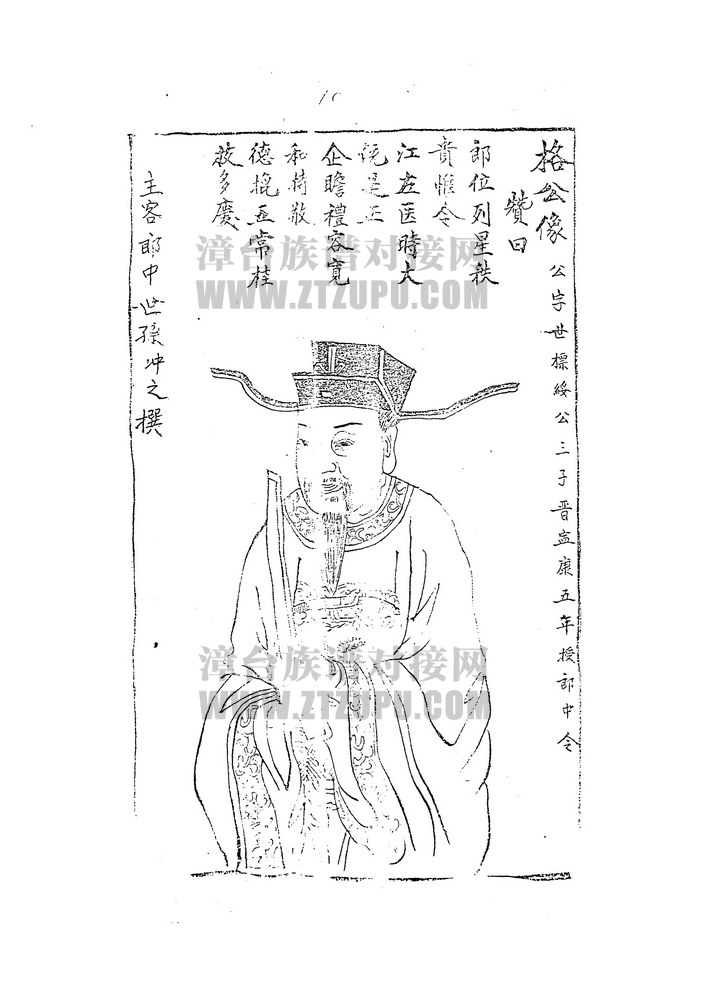 10
格公像
公字世標綏公三子晉寧康五年授郎中令
贊曰
郎位列星秩
貴惟令
江左匡時大
統是正
企瞻禮容寬
和持敬
德挹五常桂
枝多慶
主客郎中世孫冲之撰
漳台族谱对接网
WWW.ZTZUPU.COM
漳台族谱对接网
WWW.ZTZUPU.COM